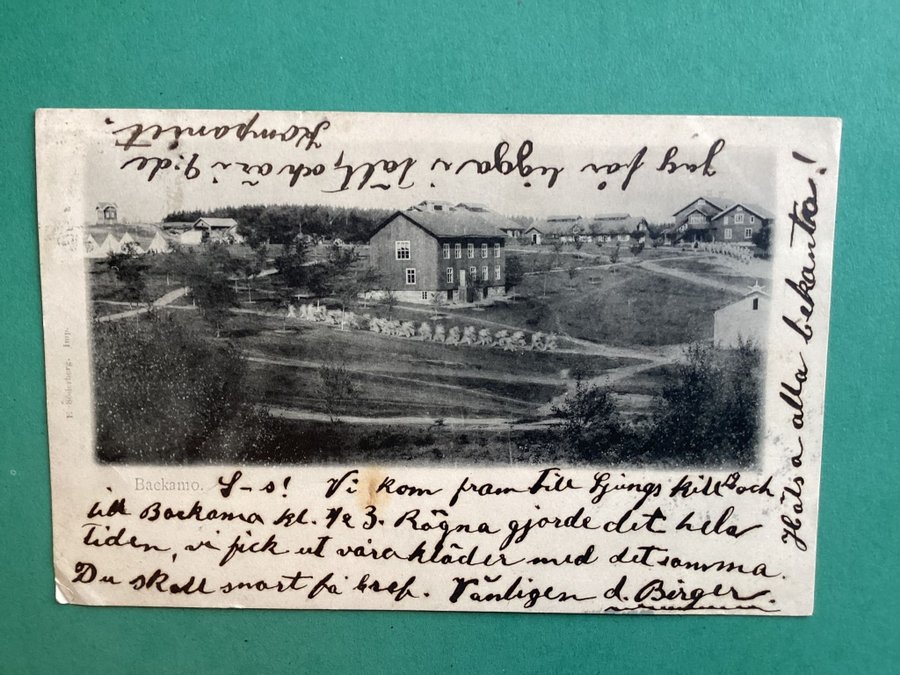 Backamo.
S-s! Vi kom fram till Ljungskile och
till Backamo kl. 1/2 3. Rägna gjorde det hela
tiden, vi fick ut våra kläder med det samma.
Du skall snart få bref. Vänligen d. Birger.
Jag får ligga i tält, och är i 9:de
Kompaniet.
Hälsa alla bekanta!
Söderberg. Imp.